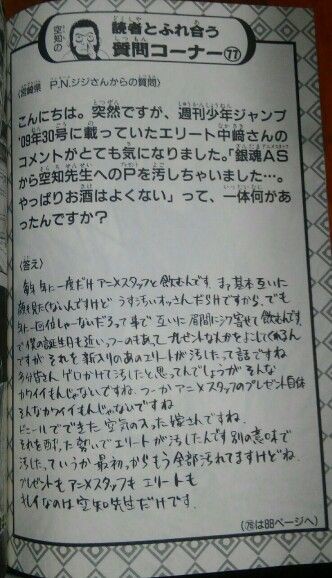 空知の
読者とふれ合う
質問コーナー77
〈宮崎県 P.N.ジジさんからの質問〉
こんにちは。突然ですが、週刊少年ジャンプ
'09年30号に載っていたエリート中﨑さんの
コメントがとても気になりました。「銀魂AS
から空知先生へのPを汚しちゃいました…。
やっぱりお酒はよくない」って、一体何があ
ったんですか？
〈答え〉
毎年年に一度だけアニメスタッフと飲むんです。まァ基本互いに
顔も見たくないんですけど うす汚いオッさんだらけですから。でも
年に一回位しゃーないだろって事で互いに眉間にシワ寄せて飲むんです
で僕の誕生日も近いっつーのもあって プレゼントなんかをよこしてくるん
ですが それを新入りのあのエリートが汚したって話ですね
多分皆さん ゲロかけて汚したと思ってんでしょうが そんな
カワイイもんじゃないですね。つーか アニメスタッフのプレゼント自体
そんなカワイイもんじゃないですね
ビニールでできた 空気の入った嫁さんですね。
それを酔った勢いでエリートが汚したんです 別の意味で
汚した、ていうか 最初からもう全部汚れてますけどね。
プレゼントも アニメスタッフも エリートも
キレイなのは 空知先生だけです。
(78は88ページへ)